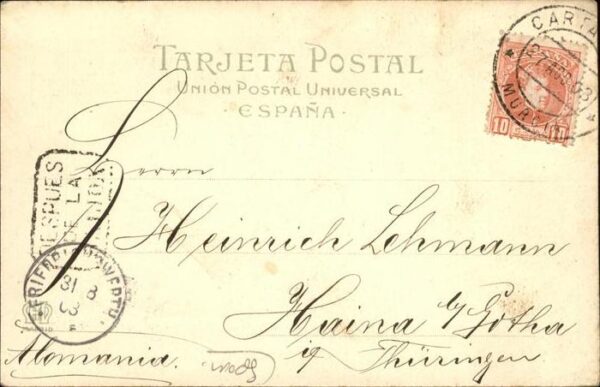 TARJETA POSTAL
UNIÓN POSTAL UNIVERSAL
- ESPAÑA -
CARTA
27 AGO 03
MURCIA
10 10
DESPUES
DE LA
31 8
03
Herrn
Heinrich Lehmann
Haina b/Gotha
i/ Thüringen.
Alemania.